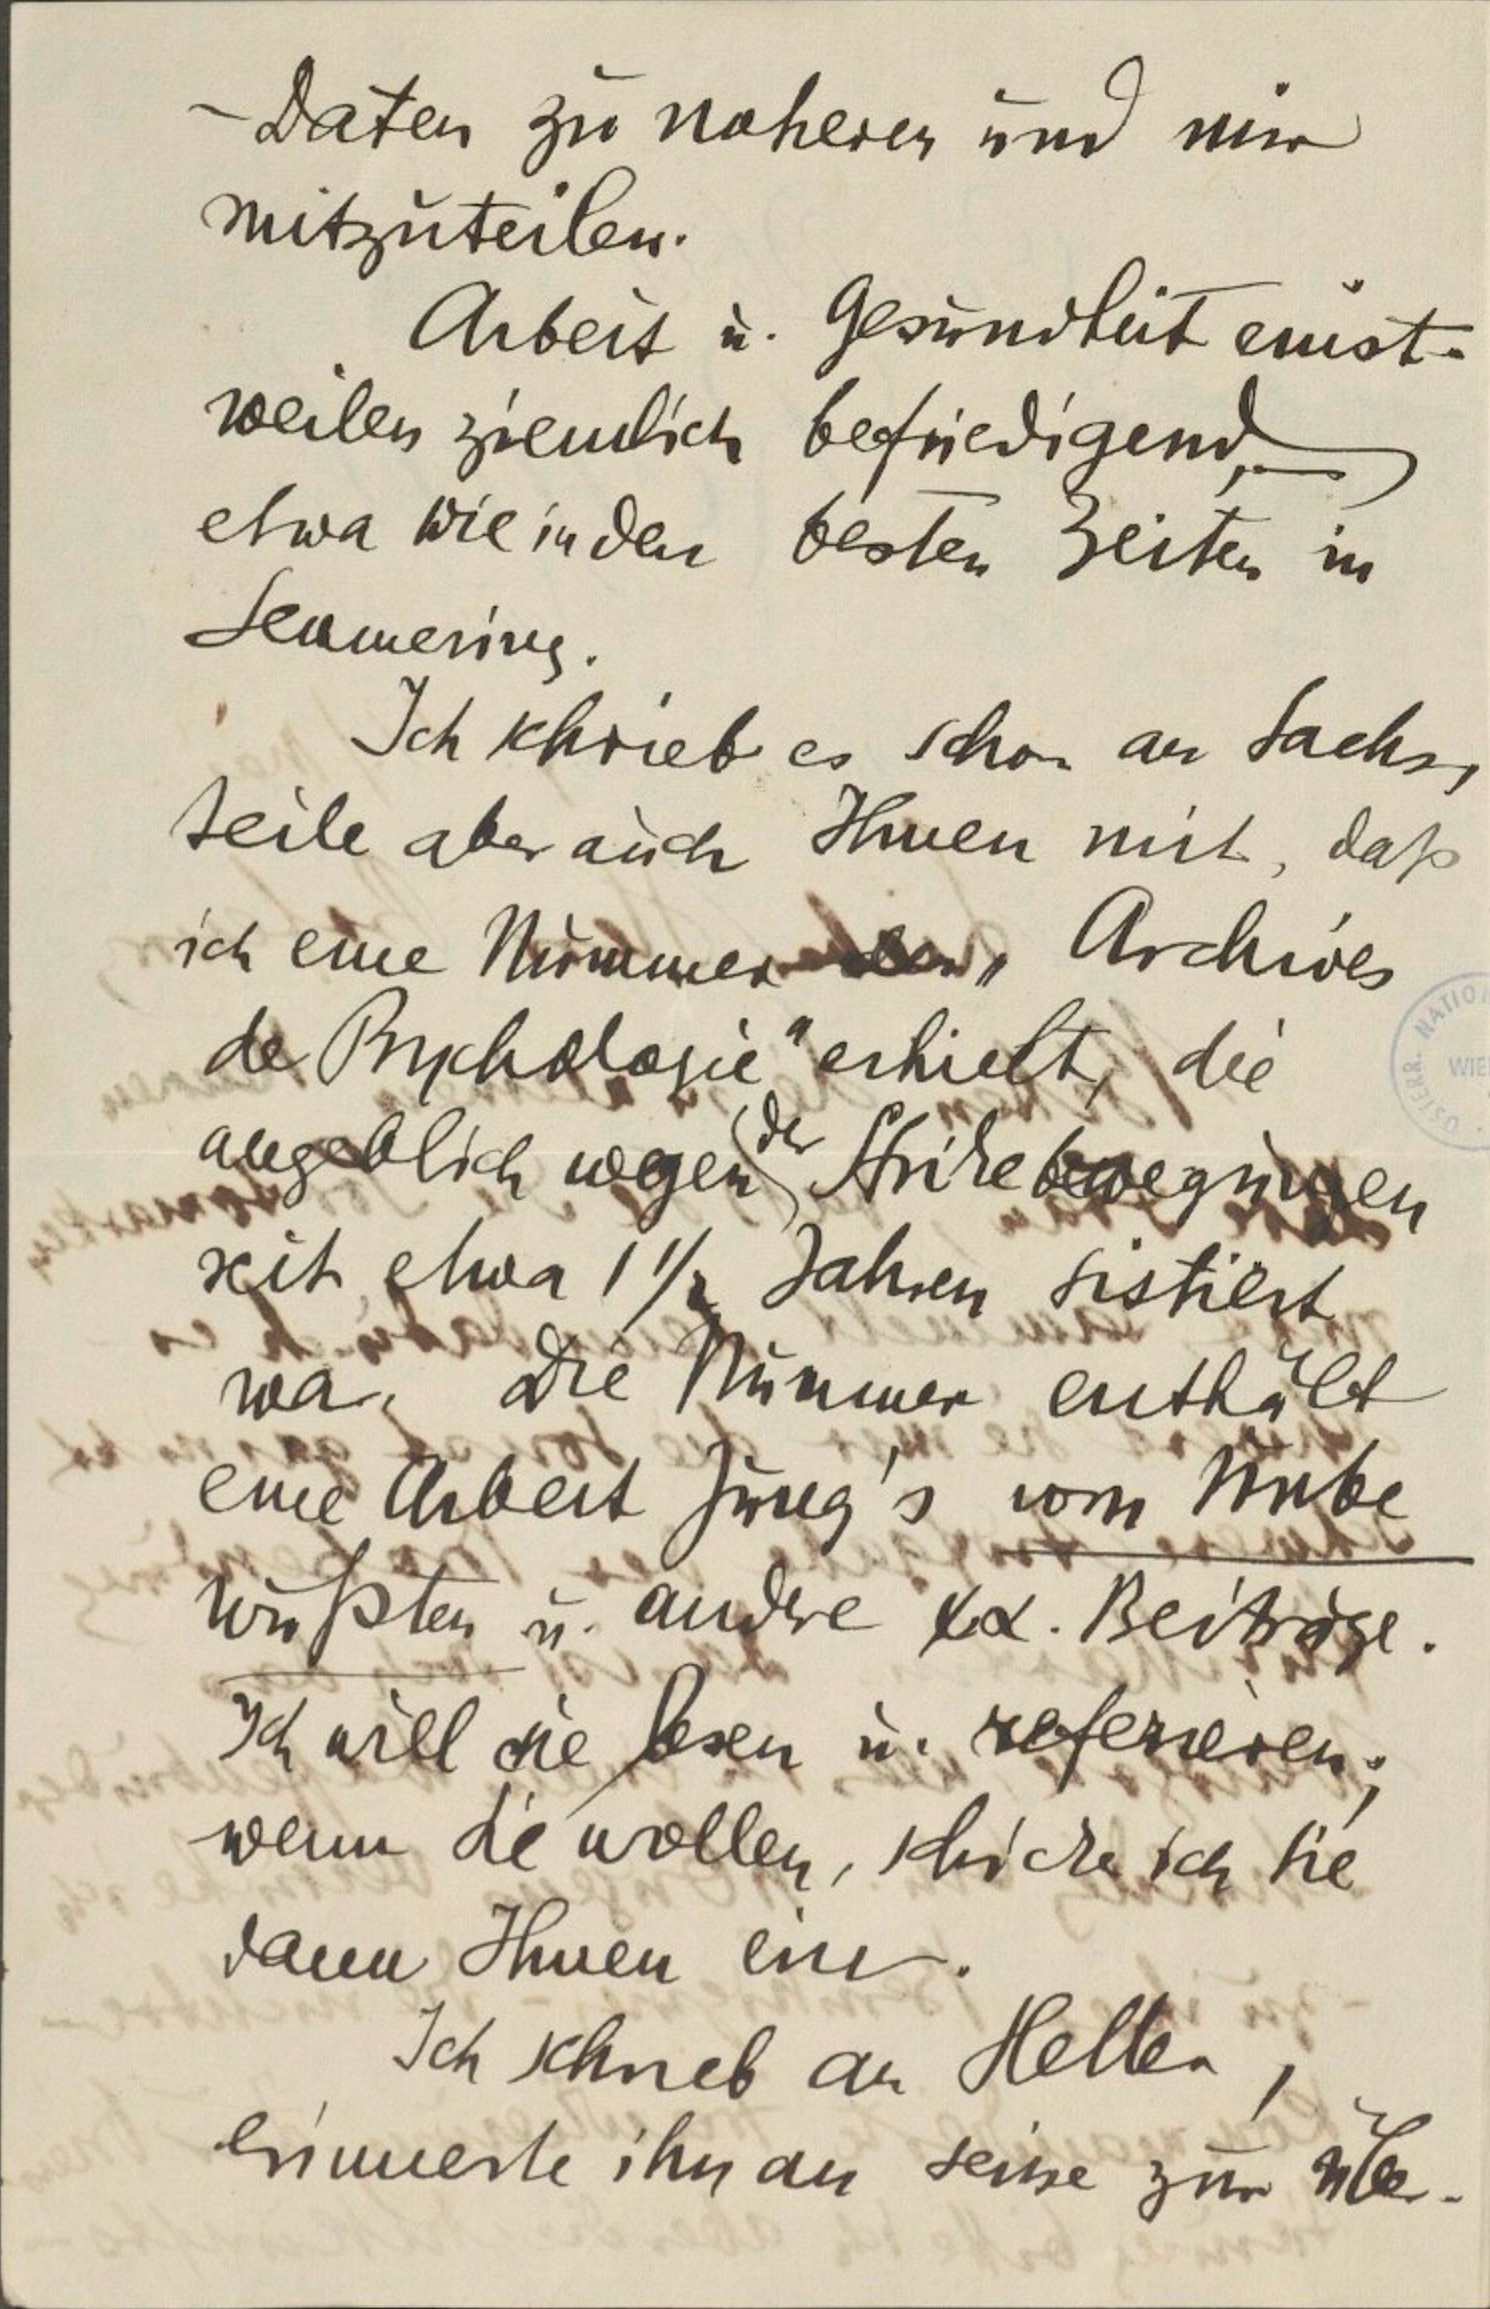 - Daten zu noheren und mir
mitzuteilen.
Arbeit u. Gesundheit einst-
weilen ziemlich befriedigend,
etwa wie in den besten Zeiten in
Semmering.
Ich schrieb es schon an Sachs,
teile aber auch Ihnen mit, daß
ich eine Nummer der „Archives
de Psychologie" erhielt, die
angeblich wegen der Strikebewegungen
seit etwa 1 1/2 Jahren sistiert
war. Die Nummer enthält
eine Arbeit Jung's vom Unbe
wußten u. andere ψα. Beiträge.
Ich will sie lesen u. referieren;
wenn Sie wollen, schicke ich sie
dann Ihnen ein.
Ich schrieb an Heller,
erinnerte ihn an seine zur über-
ÖSTERR. NATION
WIE